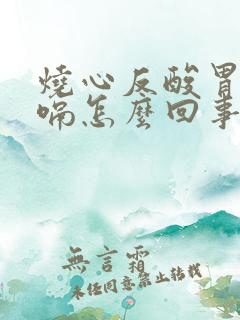 燒心反酸胃
嗝怎麼回事
無言霜
未经同意禁止转载